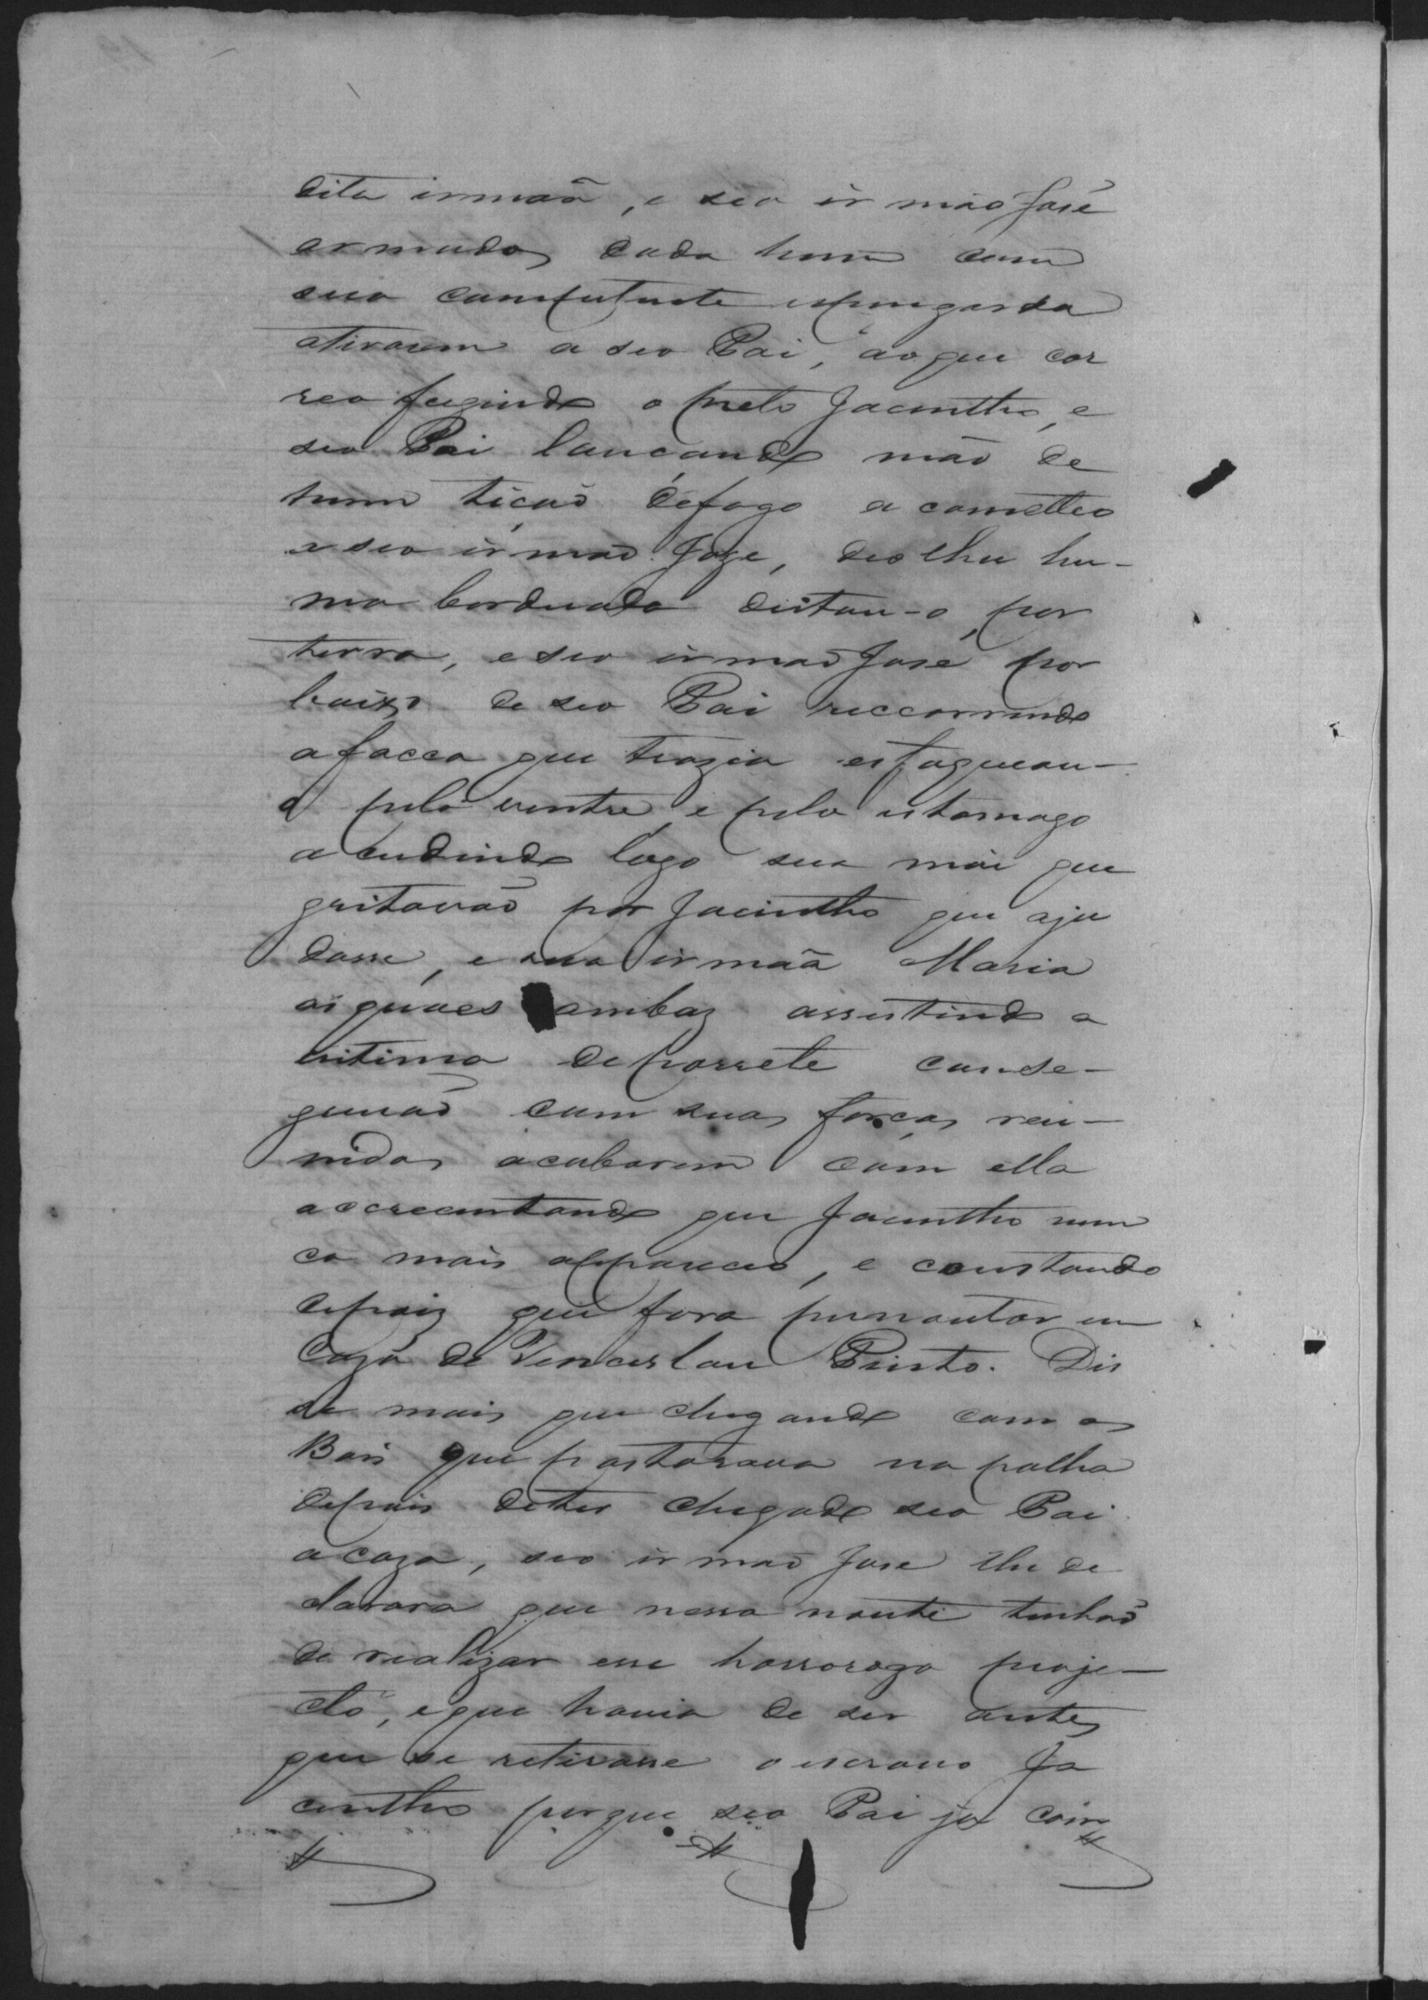 dita irmaã, e seo irmão José
armados cada hum com
sua competente espingarda
atirarem a seo Pai, ao que cor
reo fugindo o preto Jacintho, e
seo Pai lançando mão de
hum tição de fogo acometteo
a seo irmão Joze, deo lhe hu-
ma borduada deitou-o por
terra, e seo irmão José por
baixo de seo Pai reccorrendo
a facca que trazia esfaqueou-
o pelo ventre, e pelo estomago
acudindo logo sua mãi que
gritavão por Jacintho que aju
dasse, e sua irmaã Maria
as quaes ambaz assistindo a
vitima de porrete conse-
guirão com suas forças reu-
nidas acabarem com ella
accrecentando que Jacintho nun
ca mais appareceo, e constando
depoiz que fora pernoutar em
Caza de Venceslau Pinto. Dis
se mais que chegando com os
Bois que pastorava na palha
depois de ter chegado seo Pai
a caza, seo irmão José lhe de
clarara que nessa noute tinhão
de realizar esse horrorozo proje-
cto, e que havia de ser antes
que se retirasse o escravo Ja
cintho porque seo Pai ja com